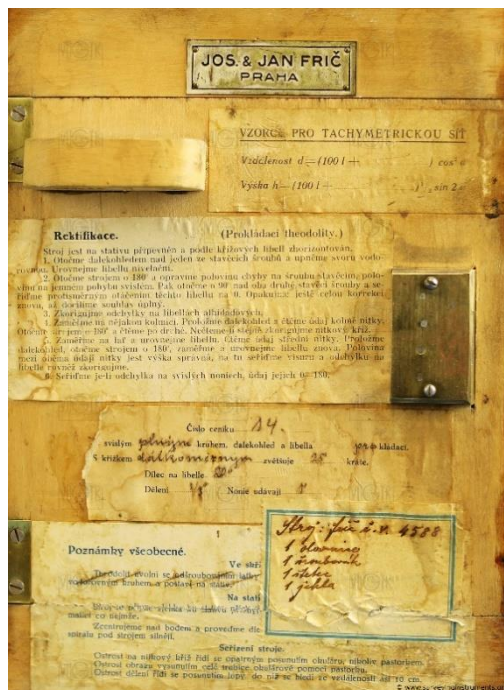 JOS. & JAN FRIČ
PRAHA
VZORCE PRO TACHYMETRICKOU SÍŤ
Vzdálenost d = (100 l + ) cos² α
Výška h = (100 l + ) sin 2 α
Rektifikace. (Prokládací theodolity.)
Stroj jest na stativu připevněn a podle křížových libell zhorizontován.
1. Otočme dalekohledem nad jeden ze stavěcích šroubů a upněme svoru vodo-
rovnou. Urovnejme libellu nivelační.
2. Otočme strojem o 180° a opravme polovinu chyby na šroubu stavěcím, polo-
vinu na jemném pohybu svislém. Pak otočme o 90° nad oba druhé stavěcí šrouby a se-
řiďme protisměrným otáčením těchto libellu na 0. Opakujme ještě celou korrekci
znova, až docílíme souhlas úplný.
3. Zkorigujme odchylky na libellách alhidádových.
4. Zaměřme na nějakou kolmici. Proložme dalekohled a čtěme údaj kolmé nitky.
Otočme strojem o 180° a čtěme po druhé. Nečteme-li stejně, zkorigujme nitkový kříž.
5. Zaměřme na lať a urovnejme libellu. Čtěme údaj střední nitky. Proložme
dalekohled, otočme strojem o 180°, zaměřme a urovnejme libellu znova. Polovina
mezi oběma údaji nitky jest výška správná, na tu seřiďme visuru a odchylku na
libelle rovněž zkorigujme.
6. Seřiďme je-li odchylka na svislých noniech, údaj jejich 0±180.
Číslo ceníku 14.
svislým plným kruhem. dalekohled a libella pro kládací.
S křížkem dálkoměrným zvětšuje 25 kráte.
Dílec na libelle 20"
Dělení Nonie udávají
Stroj: Frič č. v. 4588
1 olovnice
1 šroubovák
1 štětec
1 jehla
Poznámky všeobecné.
Ve skří
Theodolit uvolní se odšroubováním latky
vodorovným kruhem a postaví na stativ.
Na stati
matice co nejníže.
Zcentrujme nad bodem a proveďme dle
spirálu pod strojem silněji.
Seřízení stroje.
Ostrost na nitkový kříž řídí se opatrným posunutím okuláru, nikoliv pastorkem.
Ostrost obrazu vysunutím celé trubice okulárové pomocí pastorku.
Ostrost dělení řídí se posunutím lupy, do níž se hledí ze vzdálenosti asi 10 cm.